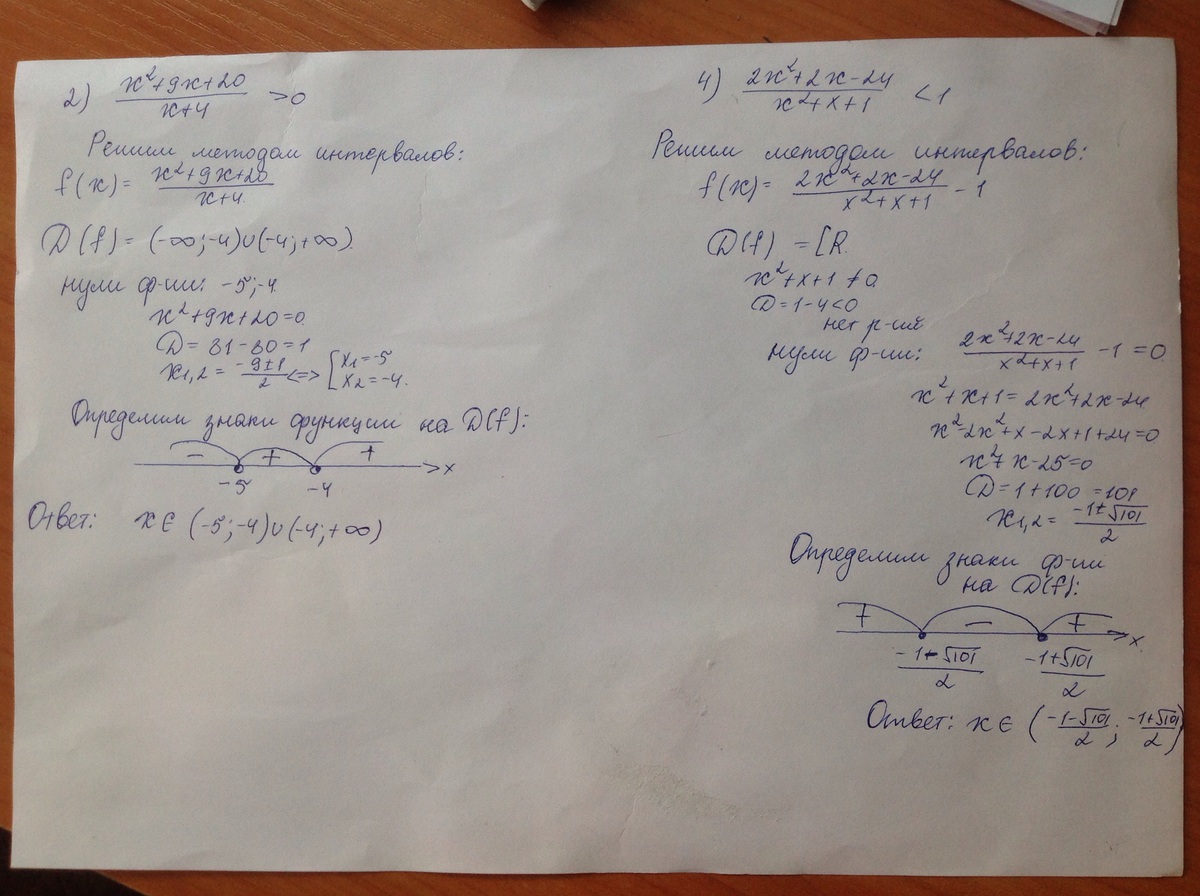 2) x²+9x+20 / x+4 >0
Решим методом интервалов:
f(x)= x²+9x+20 / x+4
D(f)= (-∞;-4)∪(-4;+∞)
нули ф-ии: -5;-4
x²+9x+20=0
D=81-80=1
x1,2= -9±1 / 2 <=> [x1=-5 x2=-4.
Определим знаки функции на D(f):
- + + x
-5 -4
Ответ: x∈ (-5;-4)∪(-4;+∞)
4) 2x²+2x-24 / x²+x+1 <1
Решим методом интервалов:
f(x)= 2x²+2x-24 / x²+x+1 -1
D(f) =R.
x²+x+1≠0
D=1-4<0
нет р-ий
нули ф-ии: 2x²+2x-24 / x²+x+1 -1=0
x²+x+1=2x²+2x-24
x²-2x²+x-2x+1+24=0
x²+x-25=0
D=1+100=101
x1,2= -1±√101 / 2
Определим знаки ф-ии
на D(f):
+ - + x
-1-√101 / 2 -1+√101 / 2
Ответ: x∈ (-1-√101 / 2 ; -1+√101 / 2)